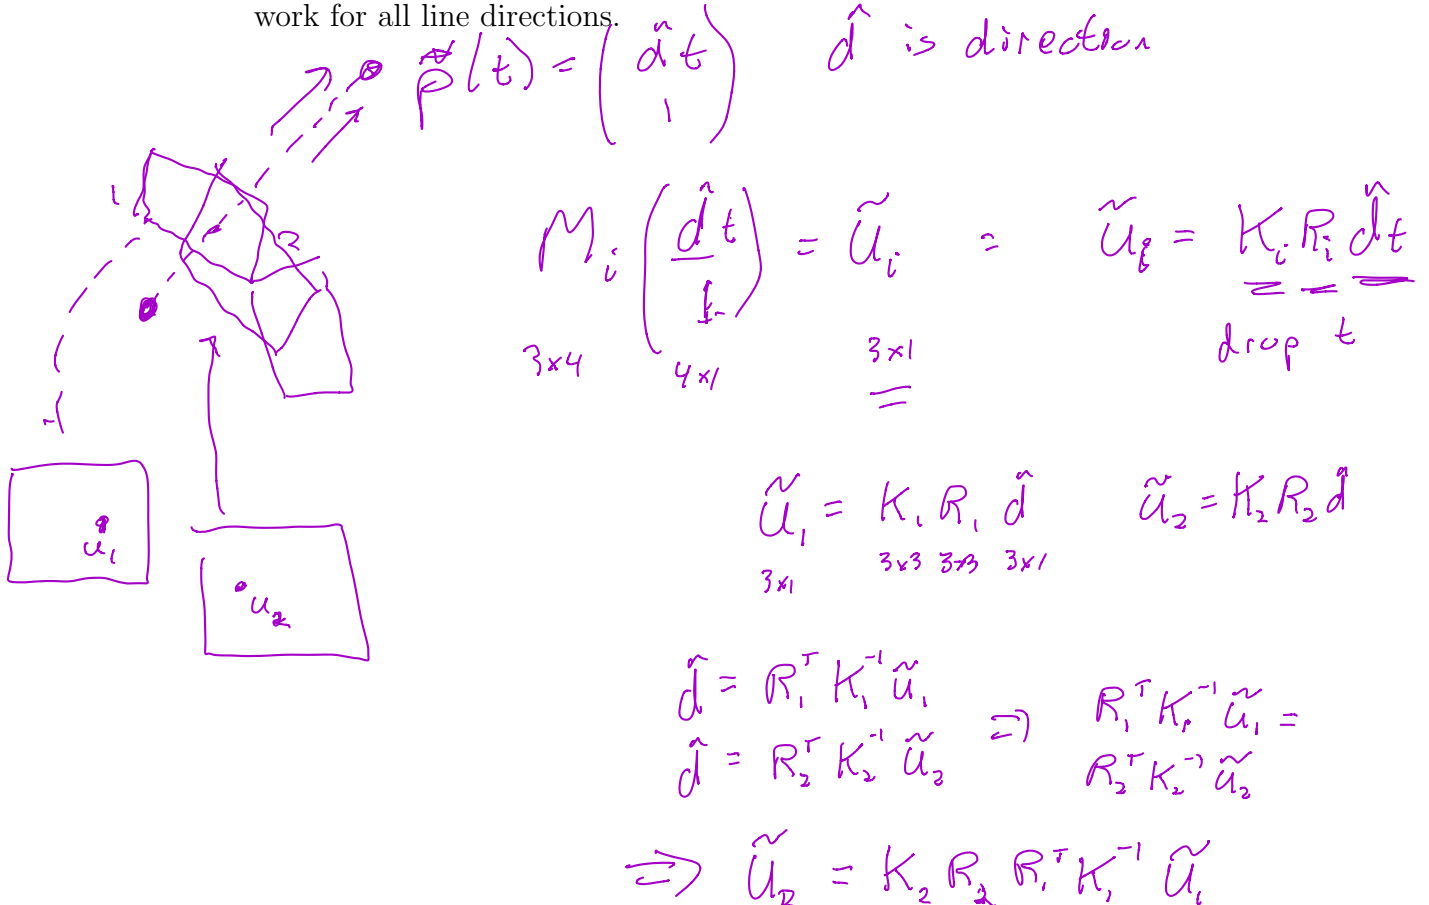 work for all line directions.
p̃(t) = (d̂t
1) d̂ is direction
1
2
M_i (d̂t
1) = ũ_i = ũ_i = K_i R_i d̂t
3x4 4x1 3x1 drop t
ũ_1 = K_1 R_1 d̂ ũ_2 = K_2 R_2 d̂
3x1 3x3 3x3 3x1
u_1
u_2
d̂ = R_1^T K_1^{-1} ũ_1 ⇒ R_1^T K_1^{-1} ũ_1 =
d̂ = R_2^T K_2^{-1} ũ_2 R_2^T K_2^{-1} ũ_2
⇒ ũ_2 = K_2 R_2 R_1^T K_1^{-1} ũ_1